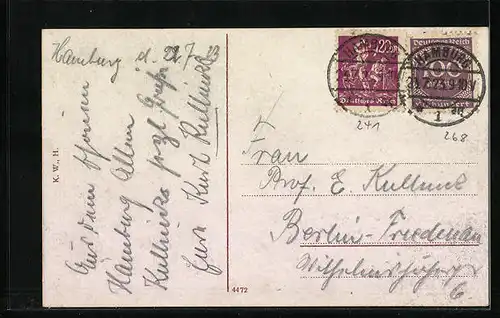 Hamburg d. 22.7.23
Aus dem schönen
Hamburg Allen
Kullnicks herzl. Grüße
Euer Kurt Kullnick
K. W., H.
4472
Deutsches Reich
20
Deutsches Reich
100
HAMBURG
23.9-10V
1
241
268
Frau
Prof. E. Kullnick
Berlin-Friedenau
Wilhelmshöherstr
6